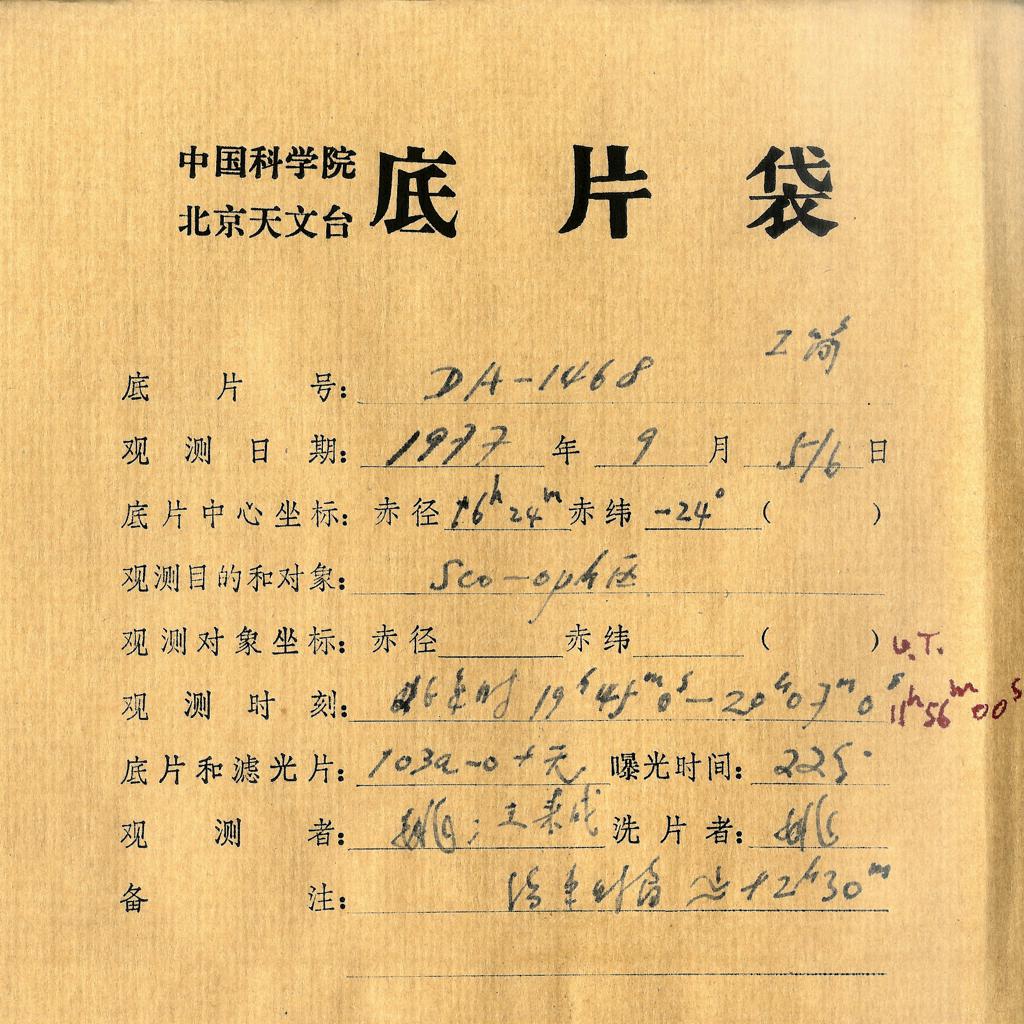 中国科学院
北京天文台
底片袋
底片号: DA-1468
观测日期: 1977年9月5/6日
底片中心坐标: 赤径16h24m赤纬-24°( )
观测目的和对象: Sco-oph区
观测对象坐标: 赤径 赤纬 ( ) U.T.
观测时刻: 19h45m0s-20h07m0s 11h56m00s
底片和滤光片: 103a-o+无 曝光时间:
观测者: 洗片者:
备注: +2h30m